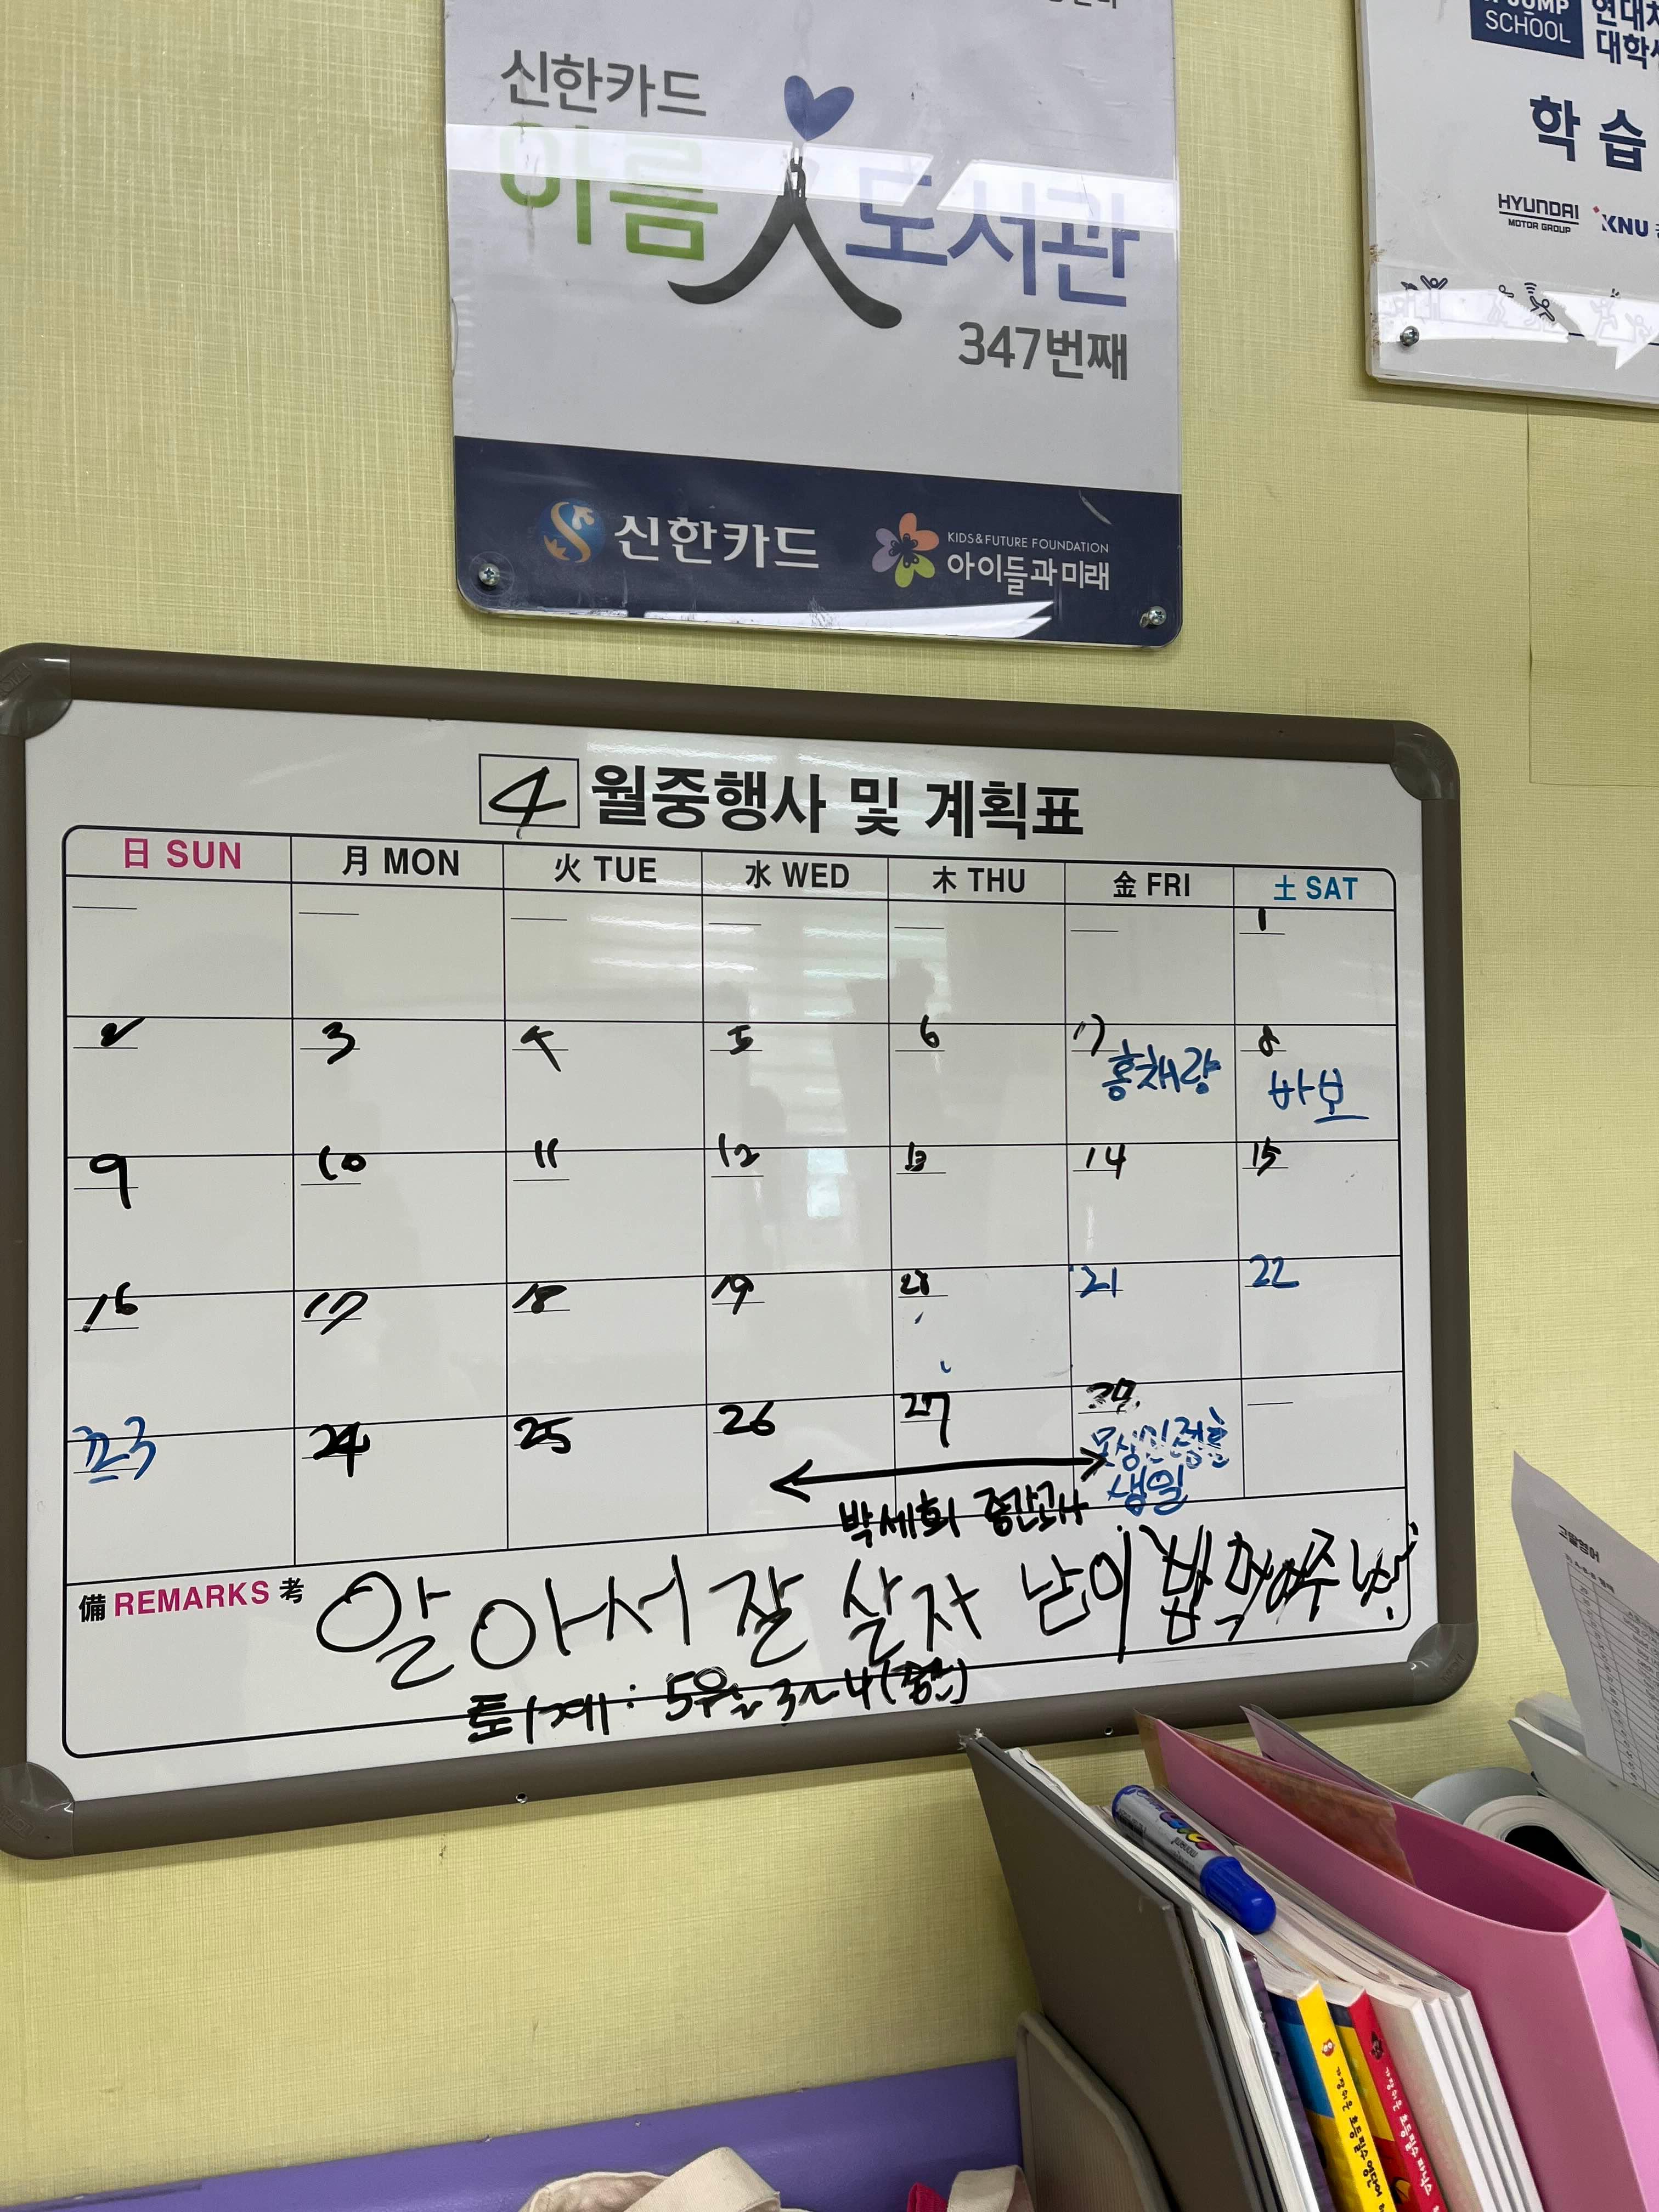 신한카드
아름人도서관
347번째
신한카드
KIDS&FUTURE FOUNDATION
아이들과미래
SCHOOL
학습
HYUNDAI
MOTOR GROUP
KNU
4 월중행사 및 계획표
日 SUN 月 MON 火 TUE 水 WED 木 THU 金 FRI 土 SAT
1
2 3 4 5 6 7 8
홍채량 바보
9 10 11 12 13 14 15
16 17 18 19 20 21 22
23 24 25 26 27
생일
박세희 중간고사
備 REMARKS 考
알아서 잘 살자 난이 밥 먹여주냐!
5월 3~4
고딸영어